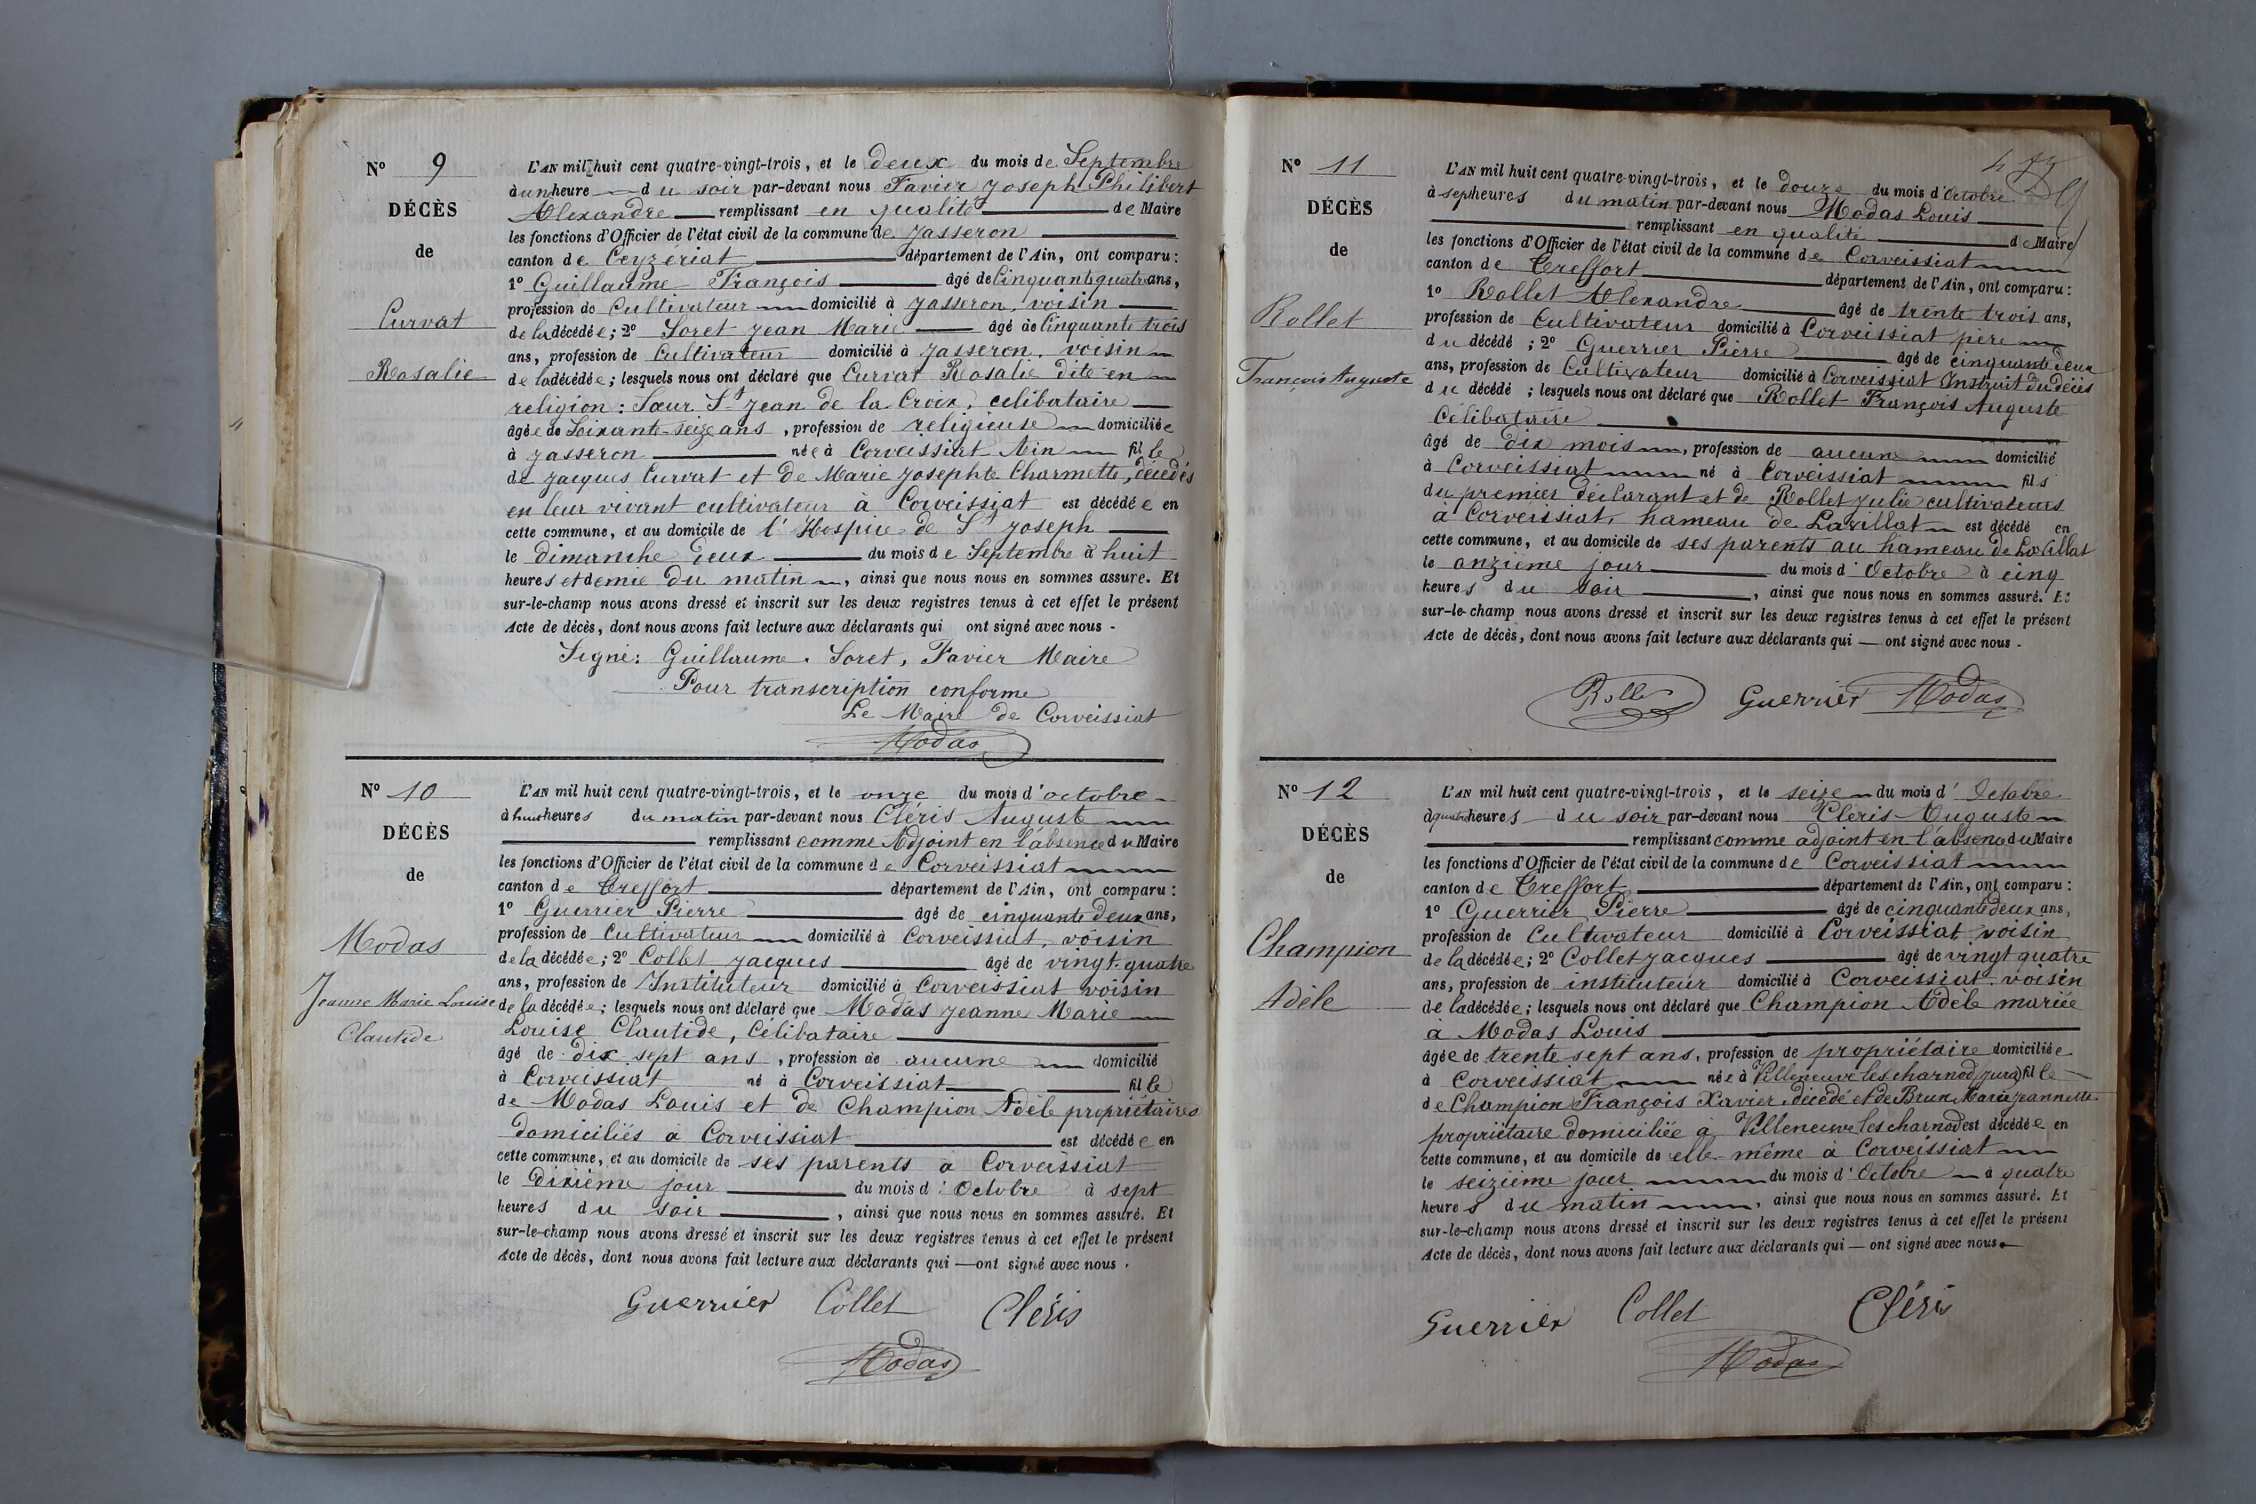 No 9
DÉCÈS
de
Curvat
Rosalie
L'AN mil huit cent quatre-vingt-trois, et le deux du mois de Septembre
à un heure du soir par-devant nous Favier Joseph Philibert
Alexandre remplissant en qualité de Maire
les fonctions d'Officier de l'état civil de la commune de Jasseron
canton de Ceyzériat département de l'Ain, ont comparu:
1o Guillaume François âgé de Cinquante quatre ans,
profession de Cultivateur domicilié à Jasseron, voisin
de la décédée; 2o Soret Jean Marie âgé de Cinquante trois
ans, profession de Cultivateur domicilié à Jasseron, voisin
de la décédée; lesquels nous ont déclaré que Curvat Rosalie dite en
religion: Sœur St Jean de la Croix, celibataire
âgée de Soixante-seize ans, profession de religieuse domiciliée
à Jasseron née à Corveissiat Ain fille
de Jacques Curvat et de Marie Josephte Charmette, décédés
en leur vivant cultivateur à Corveissiat est décédée en
cette commune, et au domicile de l'Hospice de St Joseph
le dimanche deux du mois de Septembre à huit
heures et demie du matin, ainsi que nous nous en sommes assuré. Et
sur-le-champ nous avons dressé et inscrit sur les deux registres tenus à cet effet le présent
Acte de décès, dont nous avons fait lecture aux déclarants qui ont signé avec nous.
Signé: Guillaume. Soret, Favier Maire
Pour transcription conforme
Le Maire de Corveissiat
Modas
No 10
DÉCÈS
de
Modas
Jeanne Marie Louise
Clautide
L'AN mil huit cent quatre-vingt-trois, et le onze du mois d'octobre
à huit heures du matin par-devant nous Cléris Auguste
remplissant comme Adjoint en l'absence du Maire
les fonctions d'Officier de l'état civil de la commune de Corveissiat
canton de Treffort département de l'Ain, ont comparu:
1o Guerrier Pierre âgé de cinquante deux ans,
profession de Cultivateur domicilié à Corveissiat, voisin
de la décédée; 2o Collet Jacques âgé de vingt-quatre
ans, profession de Instituteur domicilié à Corveissiat voisin
de la décédée; lesquels nous ont déclaré que Modas Jeanne Marie
Louise Clautide, Célibataire
âgé de dix sept ans, profession de aucune domicilié
à Corveissiat né à Corveissiat fille
de Modas Louis et de Champion Adèle propriétaires
domiciliés à Corveissiat est décédée en
cette commune, et au domicile de ses parents à Corveissiat
le dixième jour du mois d'Octobre à sept
heures du soir, ainsi que nous nous en sommes assuré. Et
sur-le-champ nous avons dressé et inscrit sur les deux registres tenus à cet effet le présent
Acte de décès, dont nous avons fait lecture aux déclarants qui — ont signé avec nous.
Guerrier Collet Cléris
Modas
No 11
DÉCÈS
de
Rollet
François Auguste
L'AN mil huit cent quatre-vingt-trois, et le douze du mois d'Octobre
à sept heures du matin par-devant nous Modas Louis
remplissant en qualité de Maire
les fonctions d'Officier de l'état civil de la commune de Corveissiat
canton de Treffort département de l'Ain, ont comparu:
1o Rollet Alexandre âgé de trente trois ans,
profession de Cultivateur domicilié à Corveissiat père
du décédé; 2o Guerrier Pierre âgé de cinquante deux
ans, profession de Cultivateur domicilié à Corveissiat Instruit du décès
du décédé; lesquels nous ont déclaré que Rollet François Auguste
Célibataire
âgé de dix mois, profession de aucune domicilié
à Corveissiat né à Corveissiat fils
du premier déclarant et de Rollet Julie cultivateurs
à Corveissiat, hameau de Lavillat est décédé en
cette commune, et au domicile de ses parents au hameau de Lavillat
le onzième jour du mois d'Octobre à cinq
heures du soir, ainsi que nous nous en sommes assuré. Et
sur-le-champ nous avons dressé et inscrit sur les deux registres tenus à cet effet le présent
Acte de décès, dont nous avons fait lecture aux déclarants qui — ont signé avec nous.
Guerrier Modas
No 12
DÉCÈS
de
Champion
Adèle
L'AN mil huit cent quatre-vingt-trois, et le seize du mois d'Octobre
à quatre heures du soir par-devant nous Cléris Auguste
remplissant comme adjoint en l'absence du Maire
les fonctions d'Officier de l'état civil de la commune de Corveissiat
canton de Treffort département de l'Ain, ont comparu:
1o Guerrier Pierre âgé de cinquante deux ans,
profession de Cultivateur domicilié à Corveissiat voisin
de la décédée; 2o Collet Jacques âgé de vingt quatre
ans, profession de instituteur domicilié à Corveissiat voisin
de la décédée; lesquels nous ont déclaré que Champion Adèle mariée
à Modas Louis
âgée de trente sept ans, profession de propriétaire domiciliée
à Corveissiat née à Villeneuve les charnod, Jura fille
de Champion François Xavier décédé et de Brun Marie Jeannette
propriétaire domiciliée a Villeneuve les charnod est décédée en
cette commune, et au domicile de elle-même à Corveissiat
le seizième jour du mois d'Octobre à quatre
heures du matin, ainsi que nous nous en sommes assuré. Et
sur-le-champ nous avons dressé et inscrit sur les deux registres tenus à cet effet le présent
Acte de décès, dont nous avons fait lecture aux déclarants qui — ont signé avec nous.
Guerrier Collet Cléris
Modas